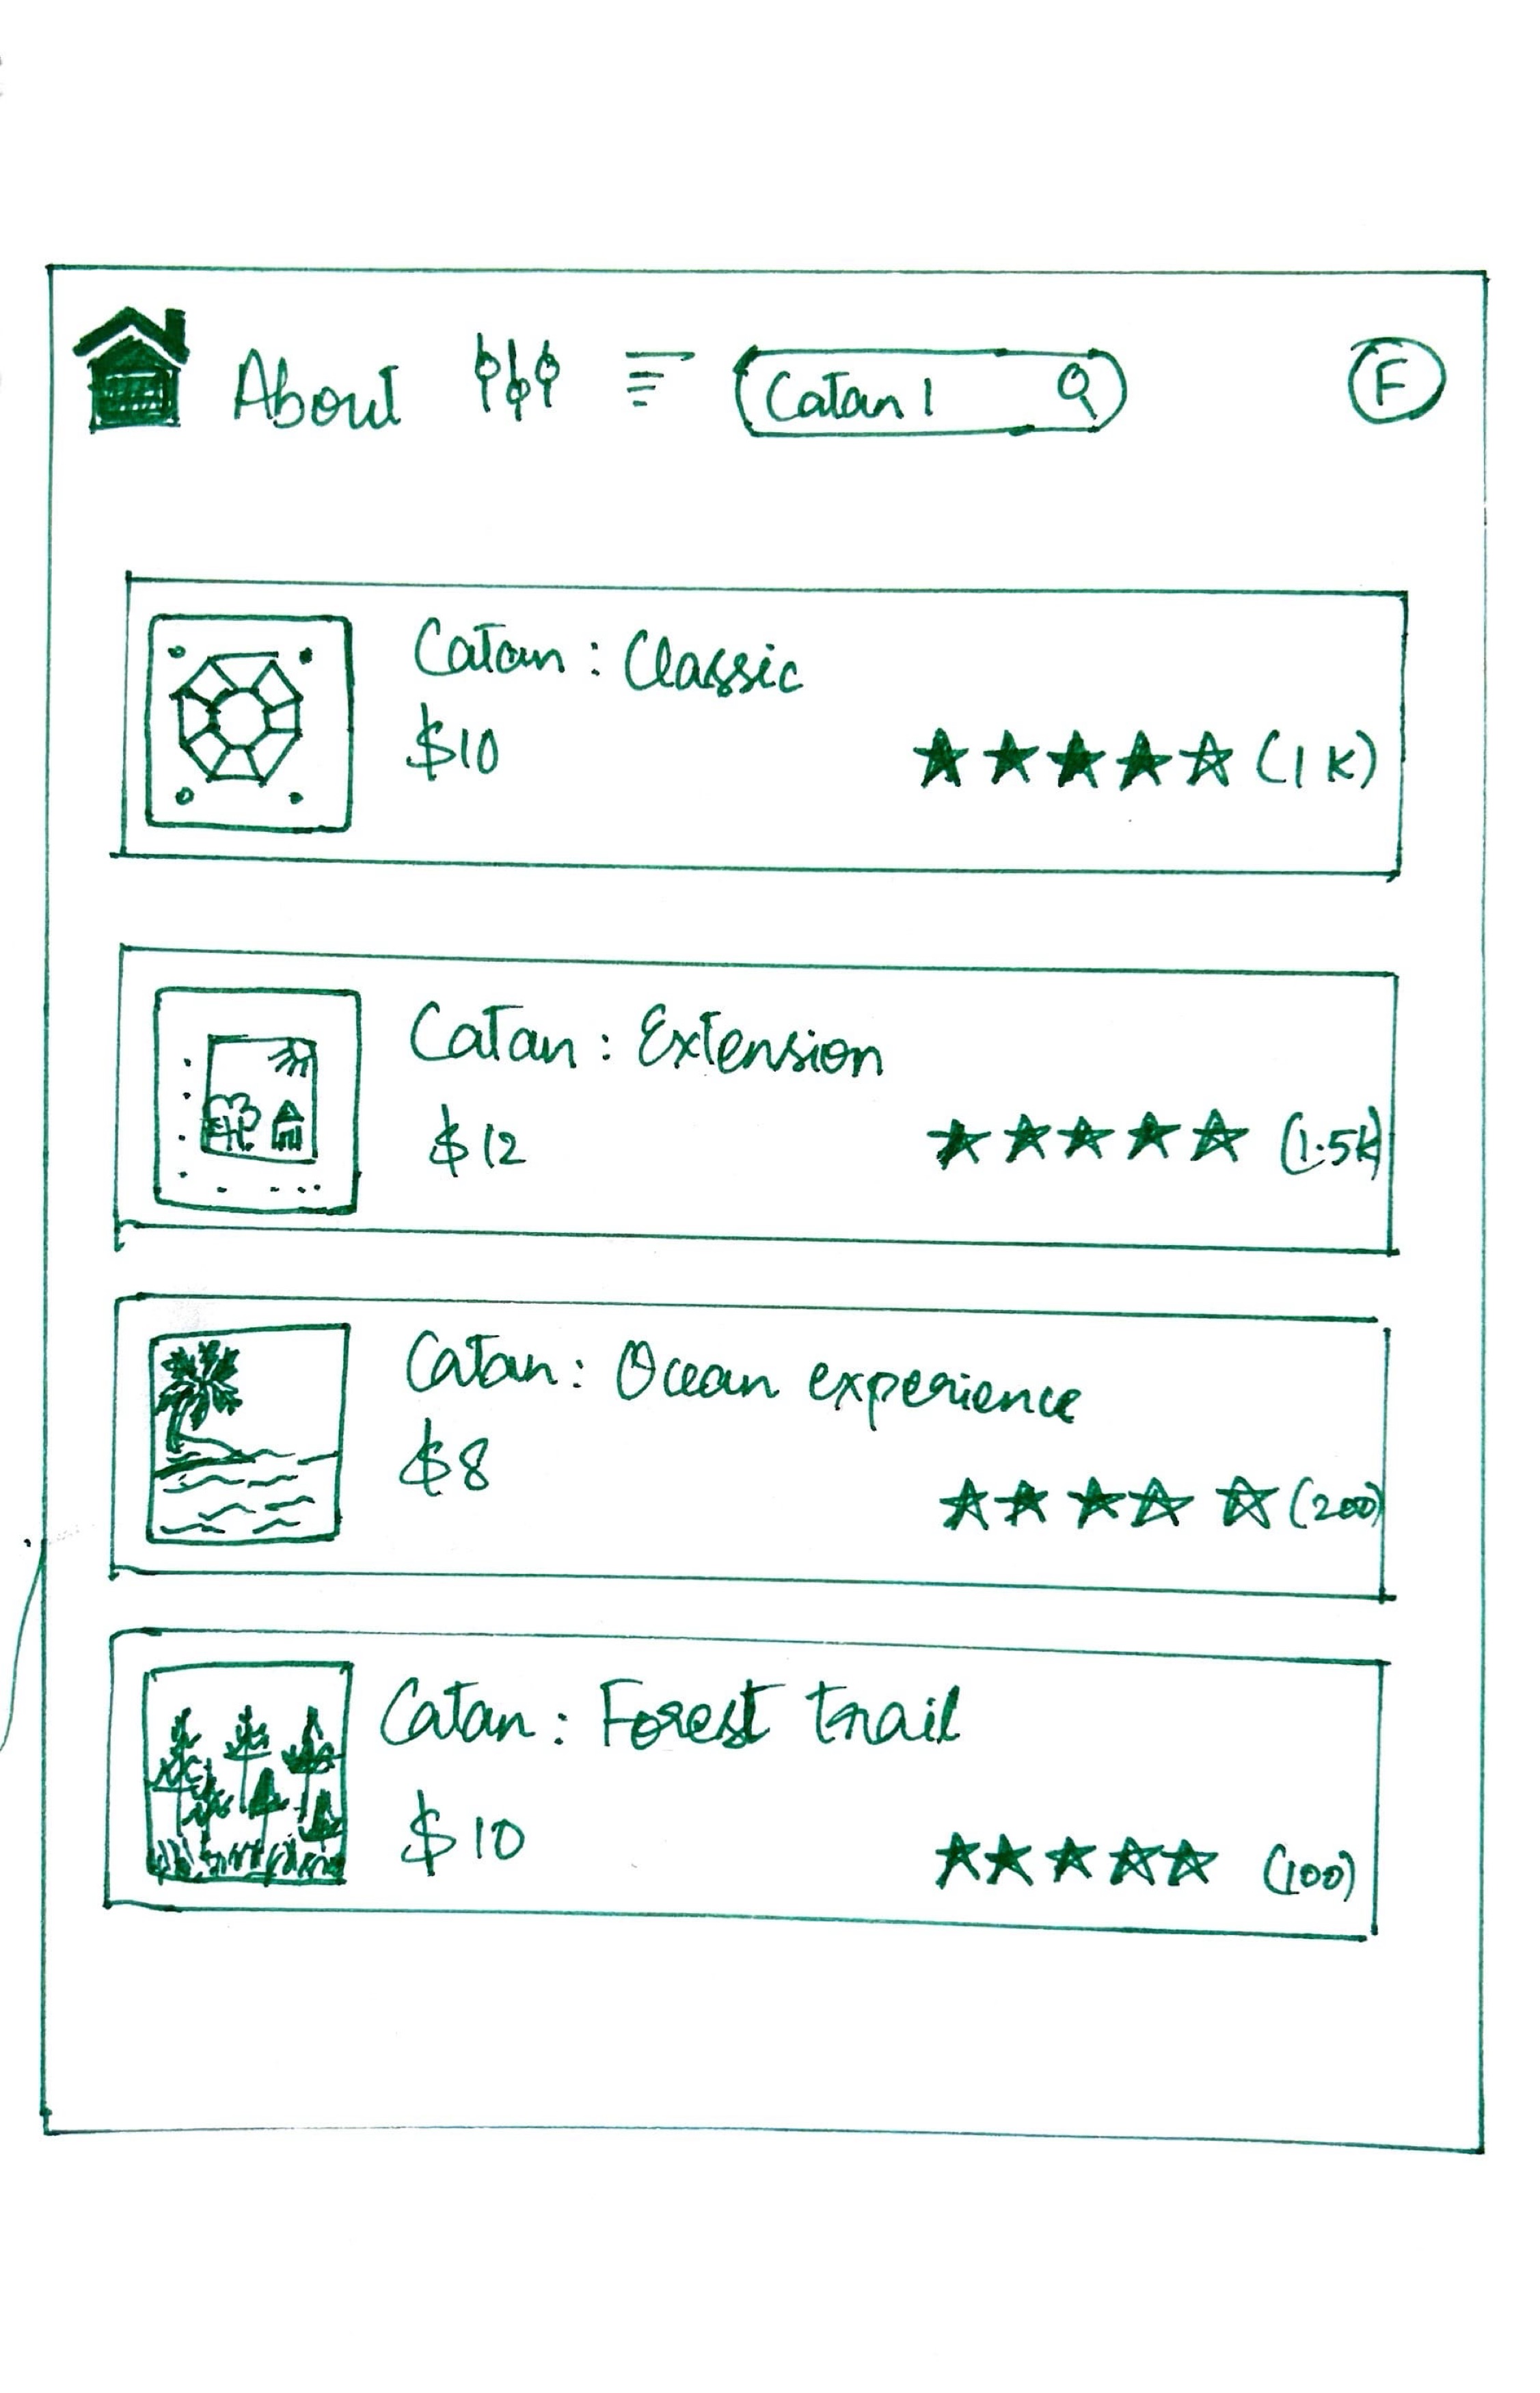 About
Catan |
F
Catan : Classic
$10
(1K)
Catan : Extension
$12
(1.5K)
Catan : Ocean experience
$8
(200)
Catan : Forest trail
$10
(100)